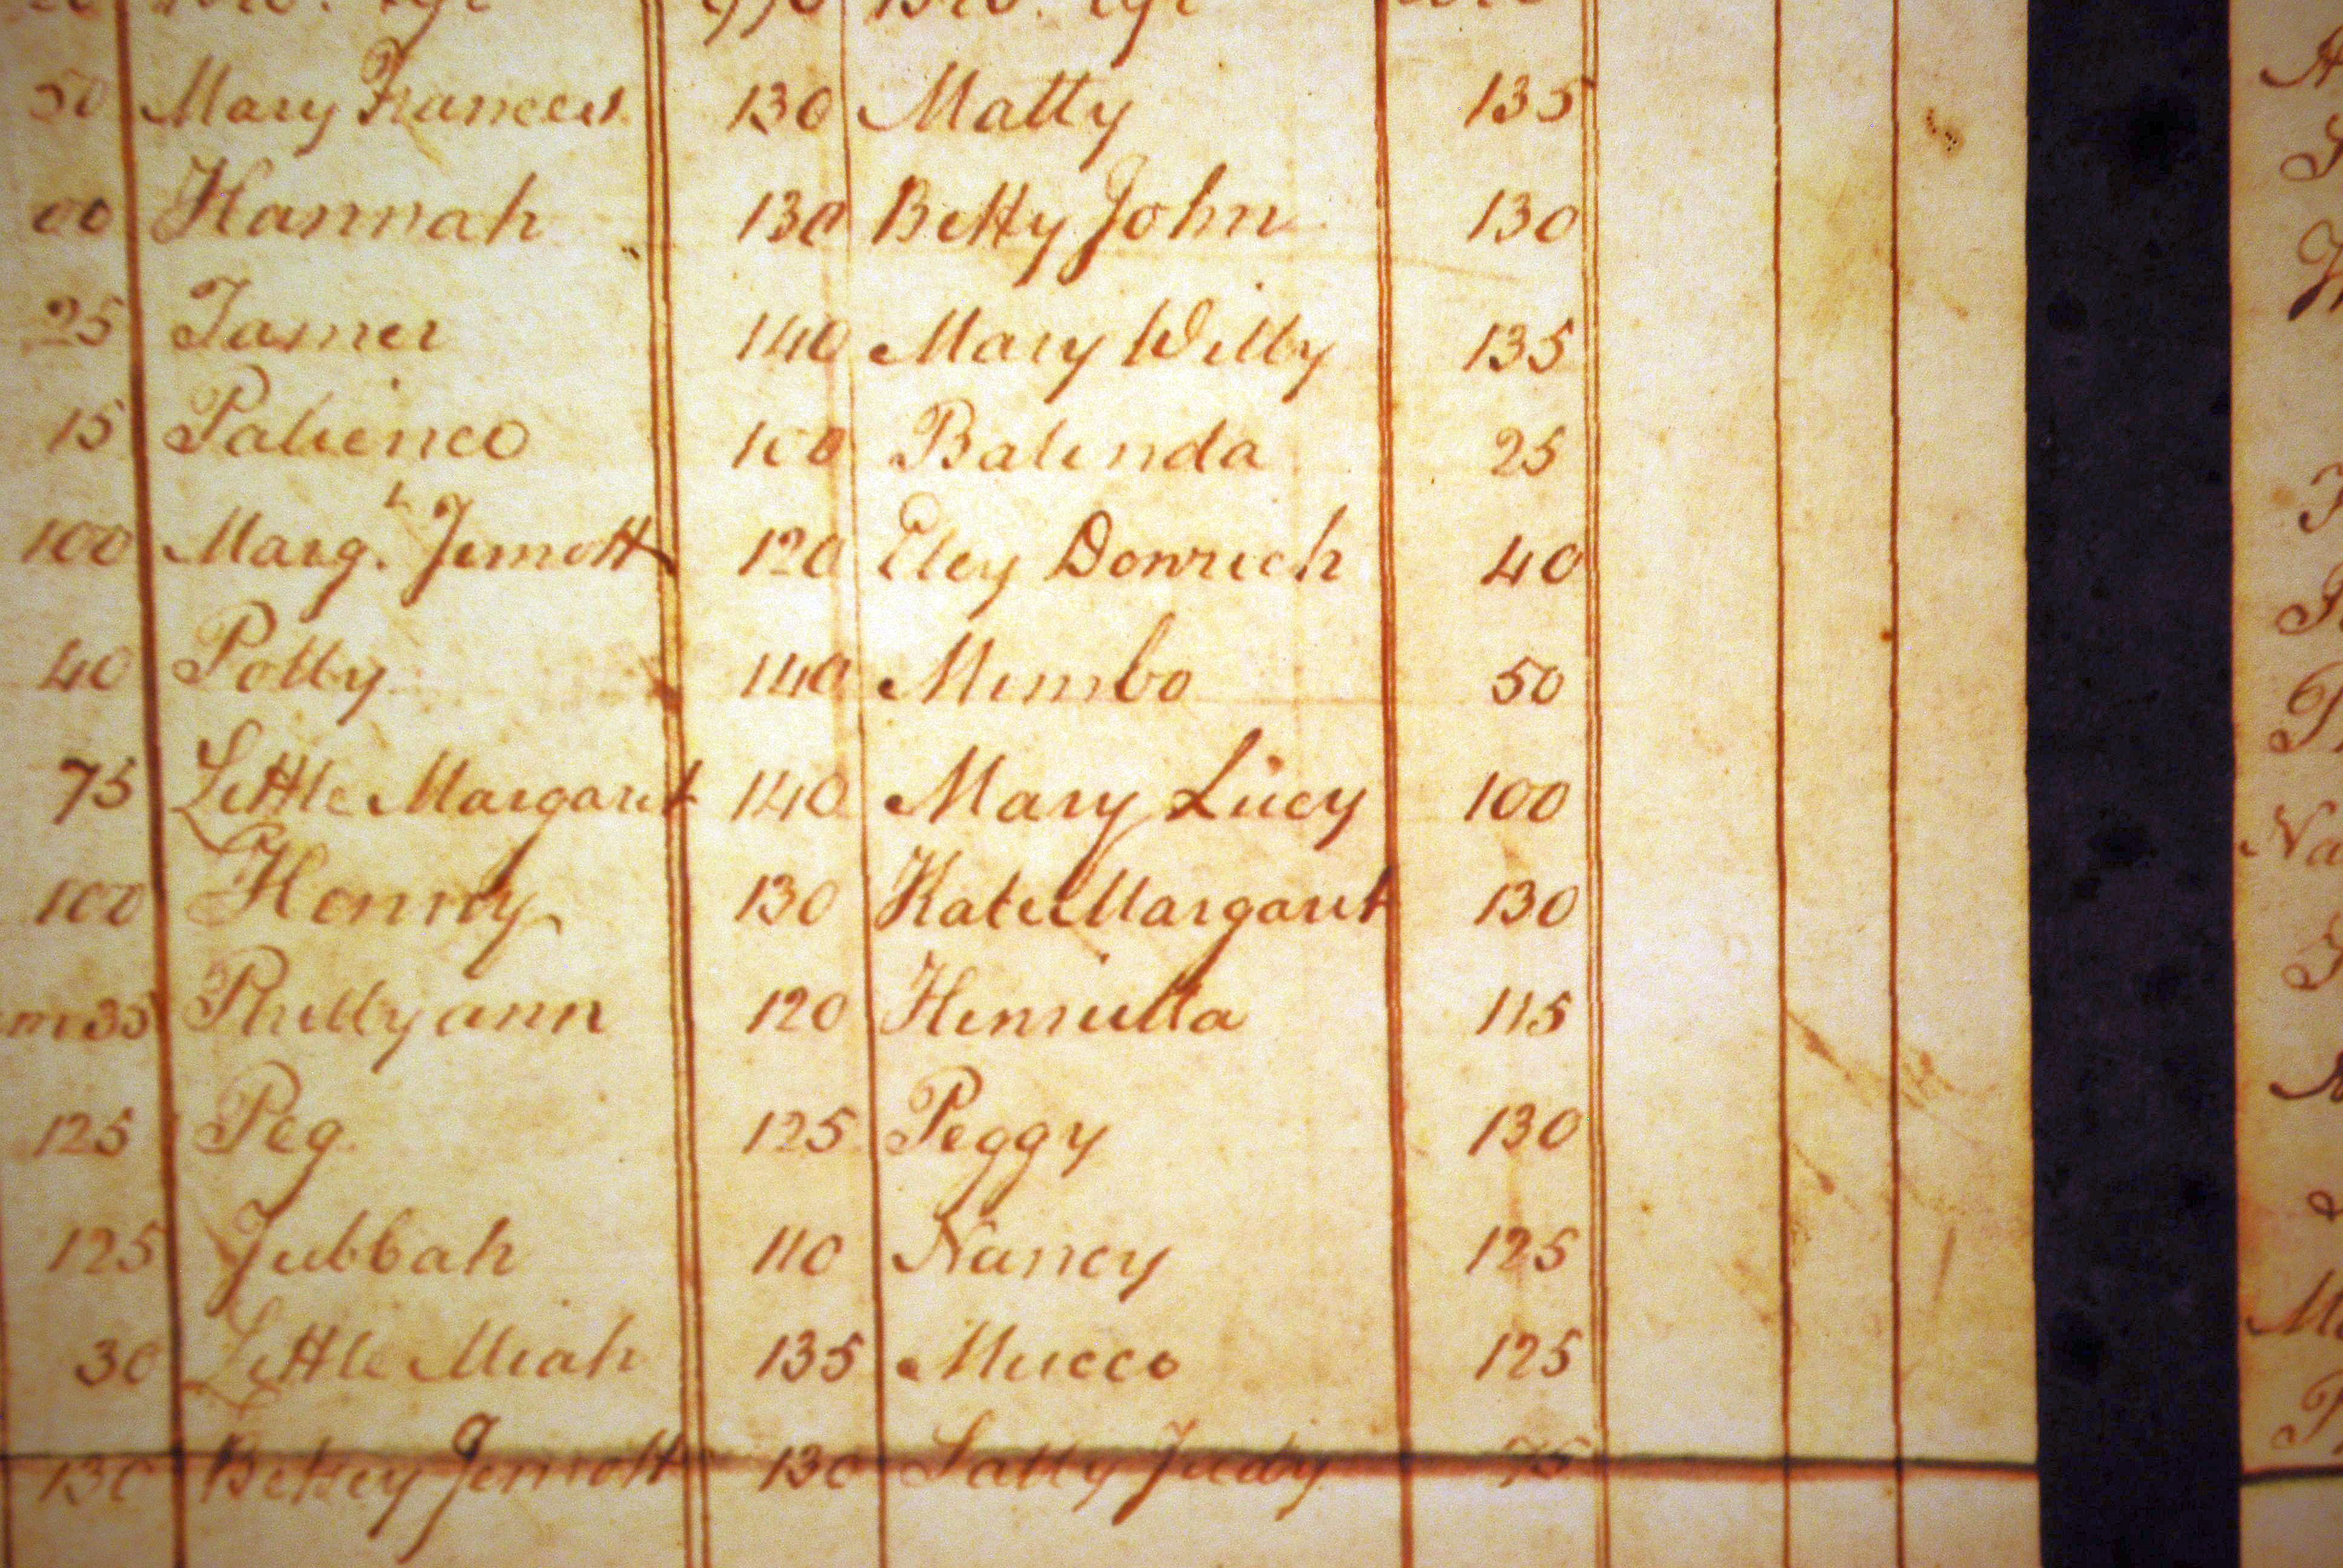 50 Mary Frances 130 Matty 135
00 Hannah 130 Betty John 130
25 Tamer 140 Mary Willy 135
15 Patience 100 Balinda 25
100 Marg.t Jemott 120 Eley Donrich 40
40 Polly 140 Mimbo 50
75 Little Margaret 140 Mary Lucy 100
100 Henny 130 Kate Margaret 130
35 Phillyann 120 Henrietta 115
125 Peg 125 Peggy 130
125 Jubbah 110 Nancy 125
30 Little Miah 135 Mucco 125
130 Betsey Jemott 130 Sally Judy 75